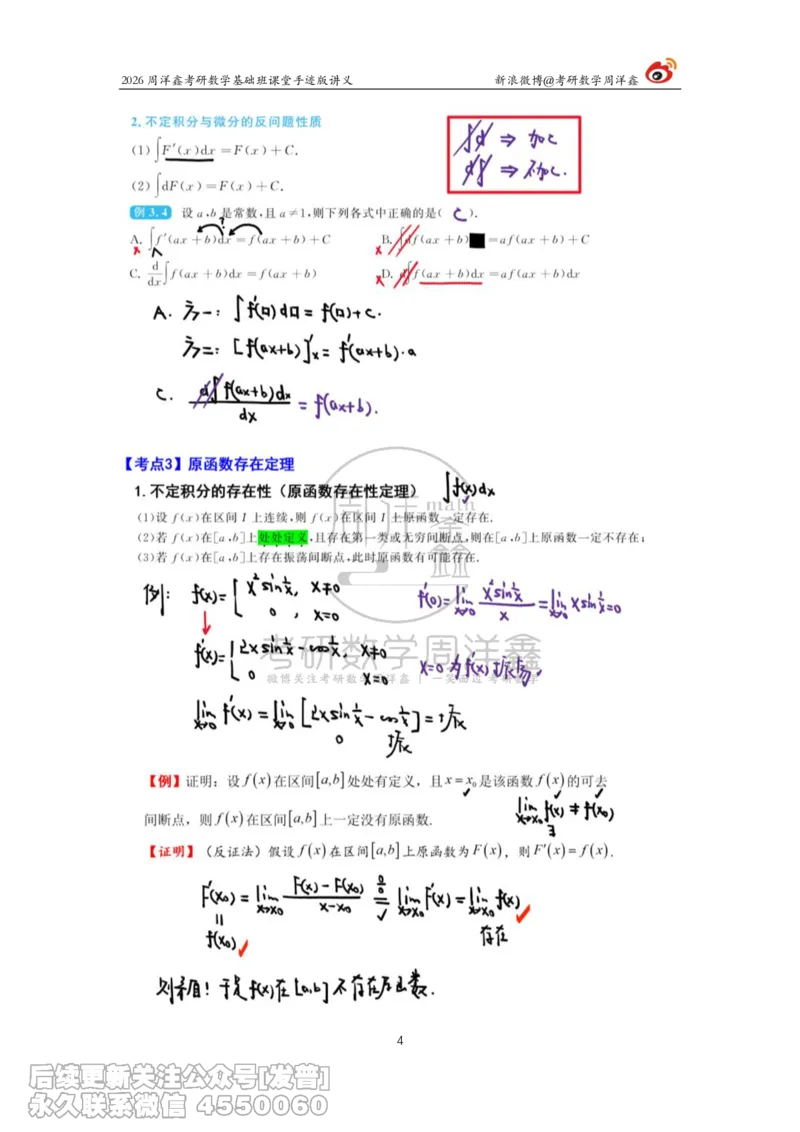 2026 周洋鑫考研数学基础班课堂手迹版讲义 新浪微博@考研数学周洋鑫
2. 不定积分与微分的反问题性质
(1) ∫F′(x)dx = F(x) + C.
∫d ⇒ 加C
(2) ∫dF(x) = F(x) + C.
d∫ ⇒ 不加C.
例 3.4 设 a,b 是常数,且 a≠1,则下列各式中正确的是( C ).
A. ∫f′(ax + b)dx = f(ax + b) + C B. ∫df(ax + b) = af(ax + b) + C
C. d/dx ∫f(ax + b)dx = f(ax + b) D. d∫f(ax + b)dx = af(ax + b)dx
A. 方一: ∫f′(□)d□ = f(□)+C.
方二: [f(ax+b)]′x = f′(ax+b)·a
C. d∫f(ax+b)dx / dx = f(ax+b).
【考点3】原函数存在定理
1. 不定积分的存在性(原函数存在性定理) ∫f(x)dx
(1)设 f(x)在区间 I 上连续,则 f(x)在区间 I 上原函数一定存在.
(2)若 f(x)在[a,b]上处处定义,且存在第一类或无穷间断点,则在[a,b]上原函数一定不存在;
(3)若 f(x)在[a,b]上存在振荡间断点,此时原函数有可能存在.
例: f(x)={ x²sin 1/x, x≠0
0 , x=0
f′(0)=lim x→0 x²sin 1/x / x = lim x→0 x sin 1/x = 0
f′(x)={ 2x sin 1/x − cos 1/x, x≠0
0 x=0
x=0 为 f′(x) 振荡.
考研数学周洋鑫
微博关注考研数学周洋鑫 | 一笑而过 考研数学
lim x→0 f′(x) = lim x→0 [2x sin 1/x − cos 1/x] = 振
0 振
【例】证明:设 f(x) 在区间[a,b]处处有定义,且 x = x₀ 是该函数 f(x) 的可去
间断点,则 f(x) 在区间[a,b]上一定没有原函数.
lim x→x₀ f(x) ≠ f(x₀)
∃
【证明】(反证法)假设 f(x) 在区间[a,b]上原函数为 F(x),则 F′(x) = f(x).
F′(x₀) = lim x→x₀ F(x) − F(x₀) / x − x₀ 0/0 = lim x→x₀ F′(x) = lim x→x₀ f(x)
=
f(x₀) 存在
则矛盾! 于是 f(x) 在 [a,b] 不存在原函数.
4
后续更新关注公众号[发普]
永久联系微信 4550060